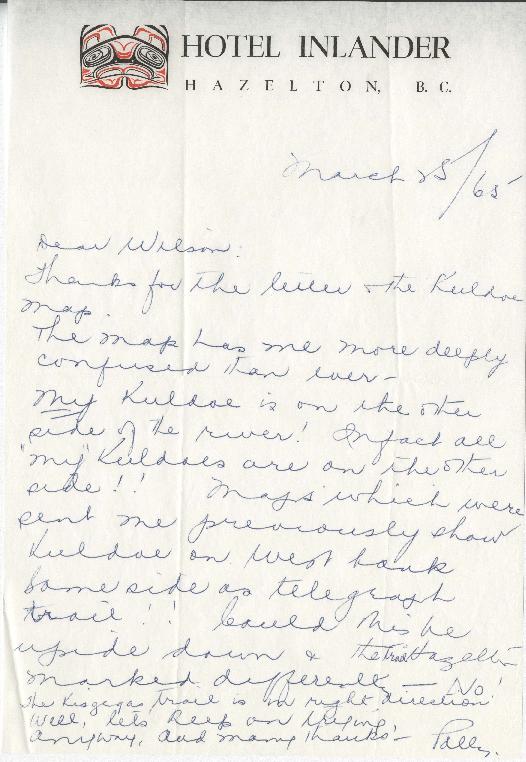 HOTEL INLANDER
HAZELTON, B.C.
March 25/65
Dear Wilson:
Thanks for the letter & the Kuldoe
map.
The map has me more deeply
confused than ever –
My Kuldoe is on the other
side of the river! Infact all
"my" Kuldoes are on the other
side!! Maps which were
sent me previously show
Kuldoe on West bank
same side as telegraph
trail!! Could this be
upside down & the trail Hazelton
marked differently – No!
The Kisgegas trail is in right direction
Well, lets keep on trying
anyway, and many thanks –
Polly.